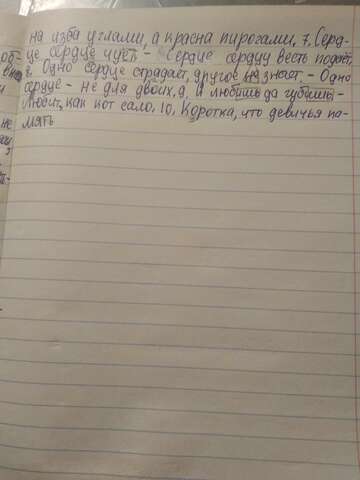 на изба углами, а красна пирогами. 7. Серд-
це сердце чует. - Сердце сердцу весть подаёт.
8. Одно сердце страдает, другое не знает. - Одно
сердце - не для двоих. 9. И любишь да губишь -
Любит, как кот сало. 10. Коротка, что девичья па-
мять